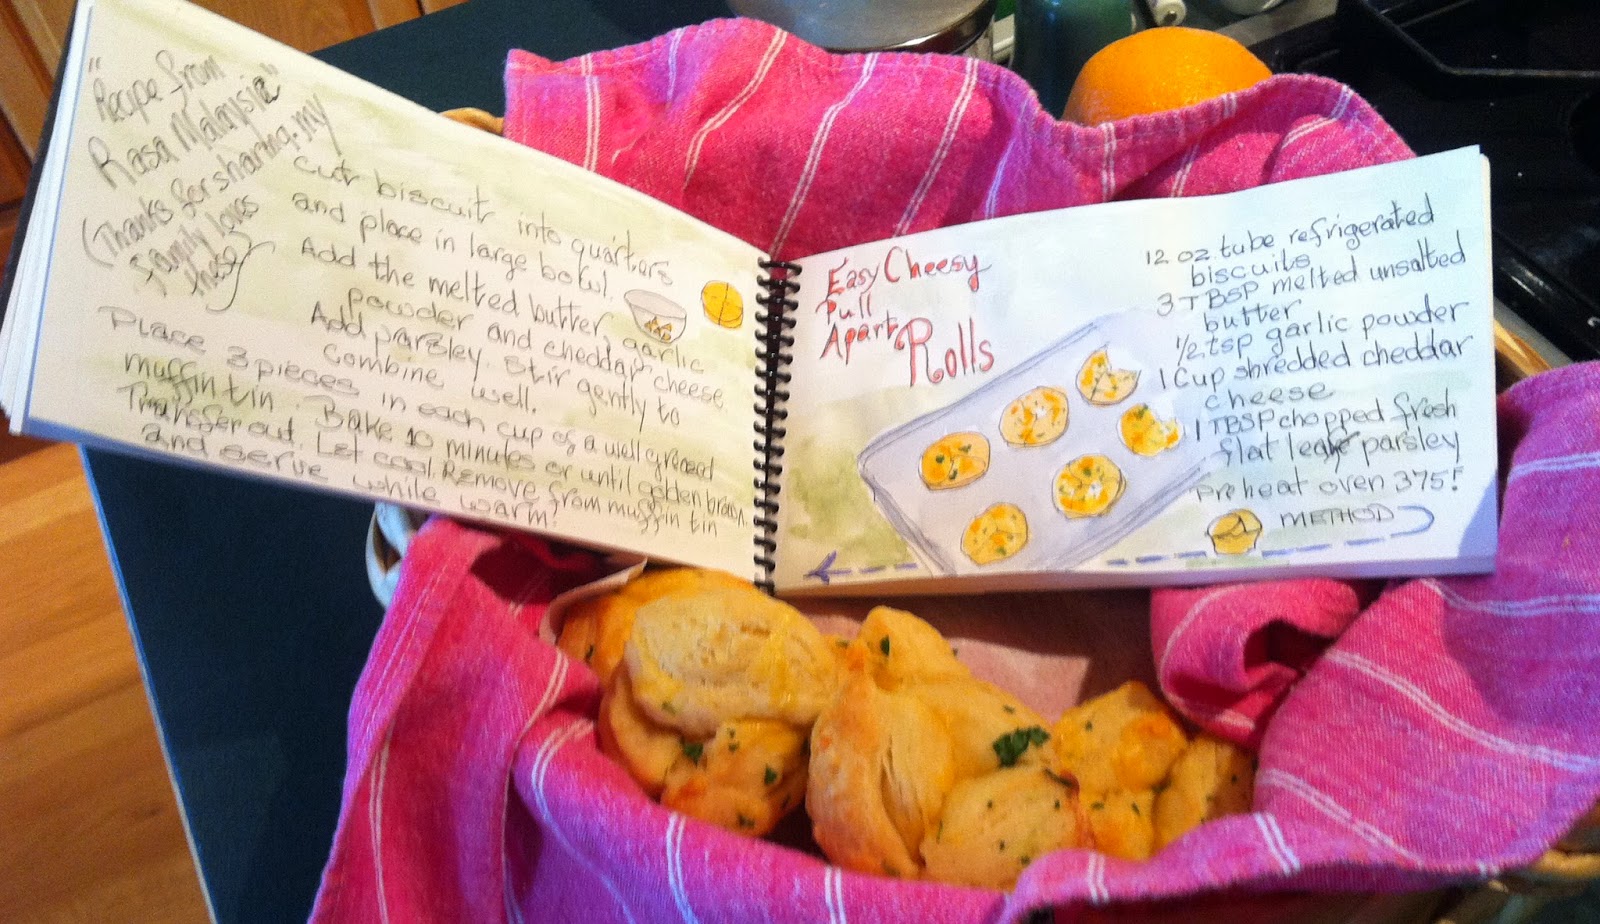 "Recipe from
Rasa Malaysia"
(Thanks for sharing. my
family loves
these)
Cut biscuits into quarters
and place in large bowl.
Add the melted butter, garlic
powder and cheddar cheese
Add parsley. Stir gently to
combine well.
Place 3 pieces in each cup of a well greased
muffin tin. Bake 10 minutes or until golden brown.
Transfer out. Let cool. Remove from muffin tin
and serve while warm!
Easy Cheesy
Pull
Apart Rolls
12 oz. tube refrigerated
biscuits
3 TBSP melted unsalted
butter
1/2 tsp garlic powder
1 Cup shredded cheddar
cheese
1 TBSP chopped fresh
flat leaf parsley
Preheat oven 375!
METHOD